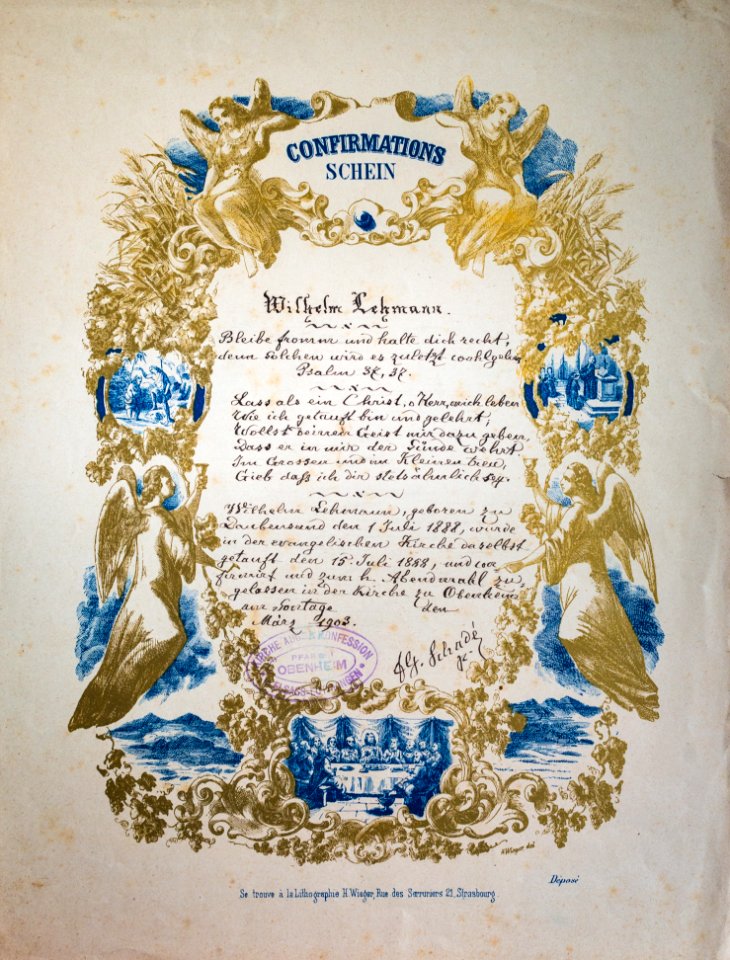 CONFIRMATIONS
SCHEIN
Wilhelm Lehmann.
Bleibe fromm und halte dich recht,
denn solchen wird es zuletzt wohlgehen
Psalm 37, 37.
Lass als ein Christ, o Herr, mich leben
Wie ich getauft bin und gelehrt;
Wollst deinen Geist mir dazu geben,
Dass er in mir der Sünde wehrt
Im Grossen und im Kleinen treu,
Gieb daß ich dir stets ähnlich sey.
Wilhelm Lehmann, geboren zu
Daubensand den 1 Juli 1888, wurde
in der evangelischen Kirche daselbst
getauft den 15. Juli 1888, und con
firmirt und zum h. Abendmahl zu
gelassen in der Kirche zu Obenheim
am Sontage den
März 1903.
KIRCHE AUGSB. KONFESSION
PFARREI
OBENHEIM
ELSASS-LOTHRINGEN
G. Schadé
H. Wieger del.
Déposé
Se trouve à la Lithographie H. Wieger, Rue des Serruriers 21, Strasbourg.